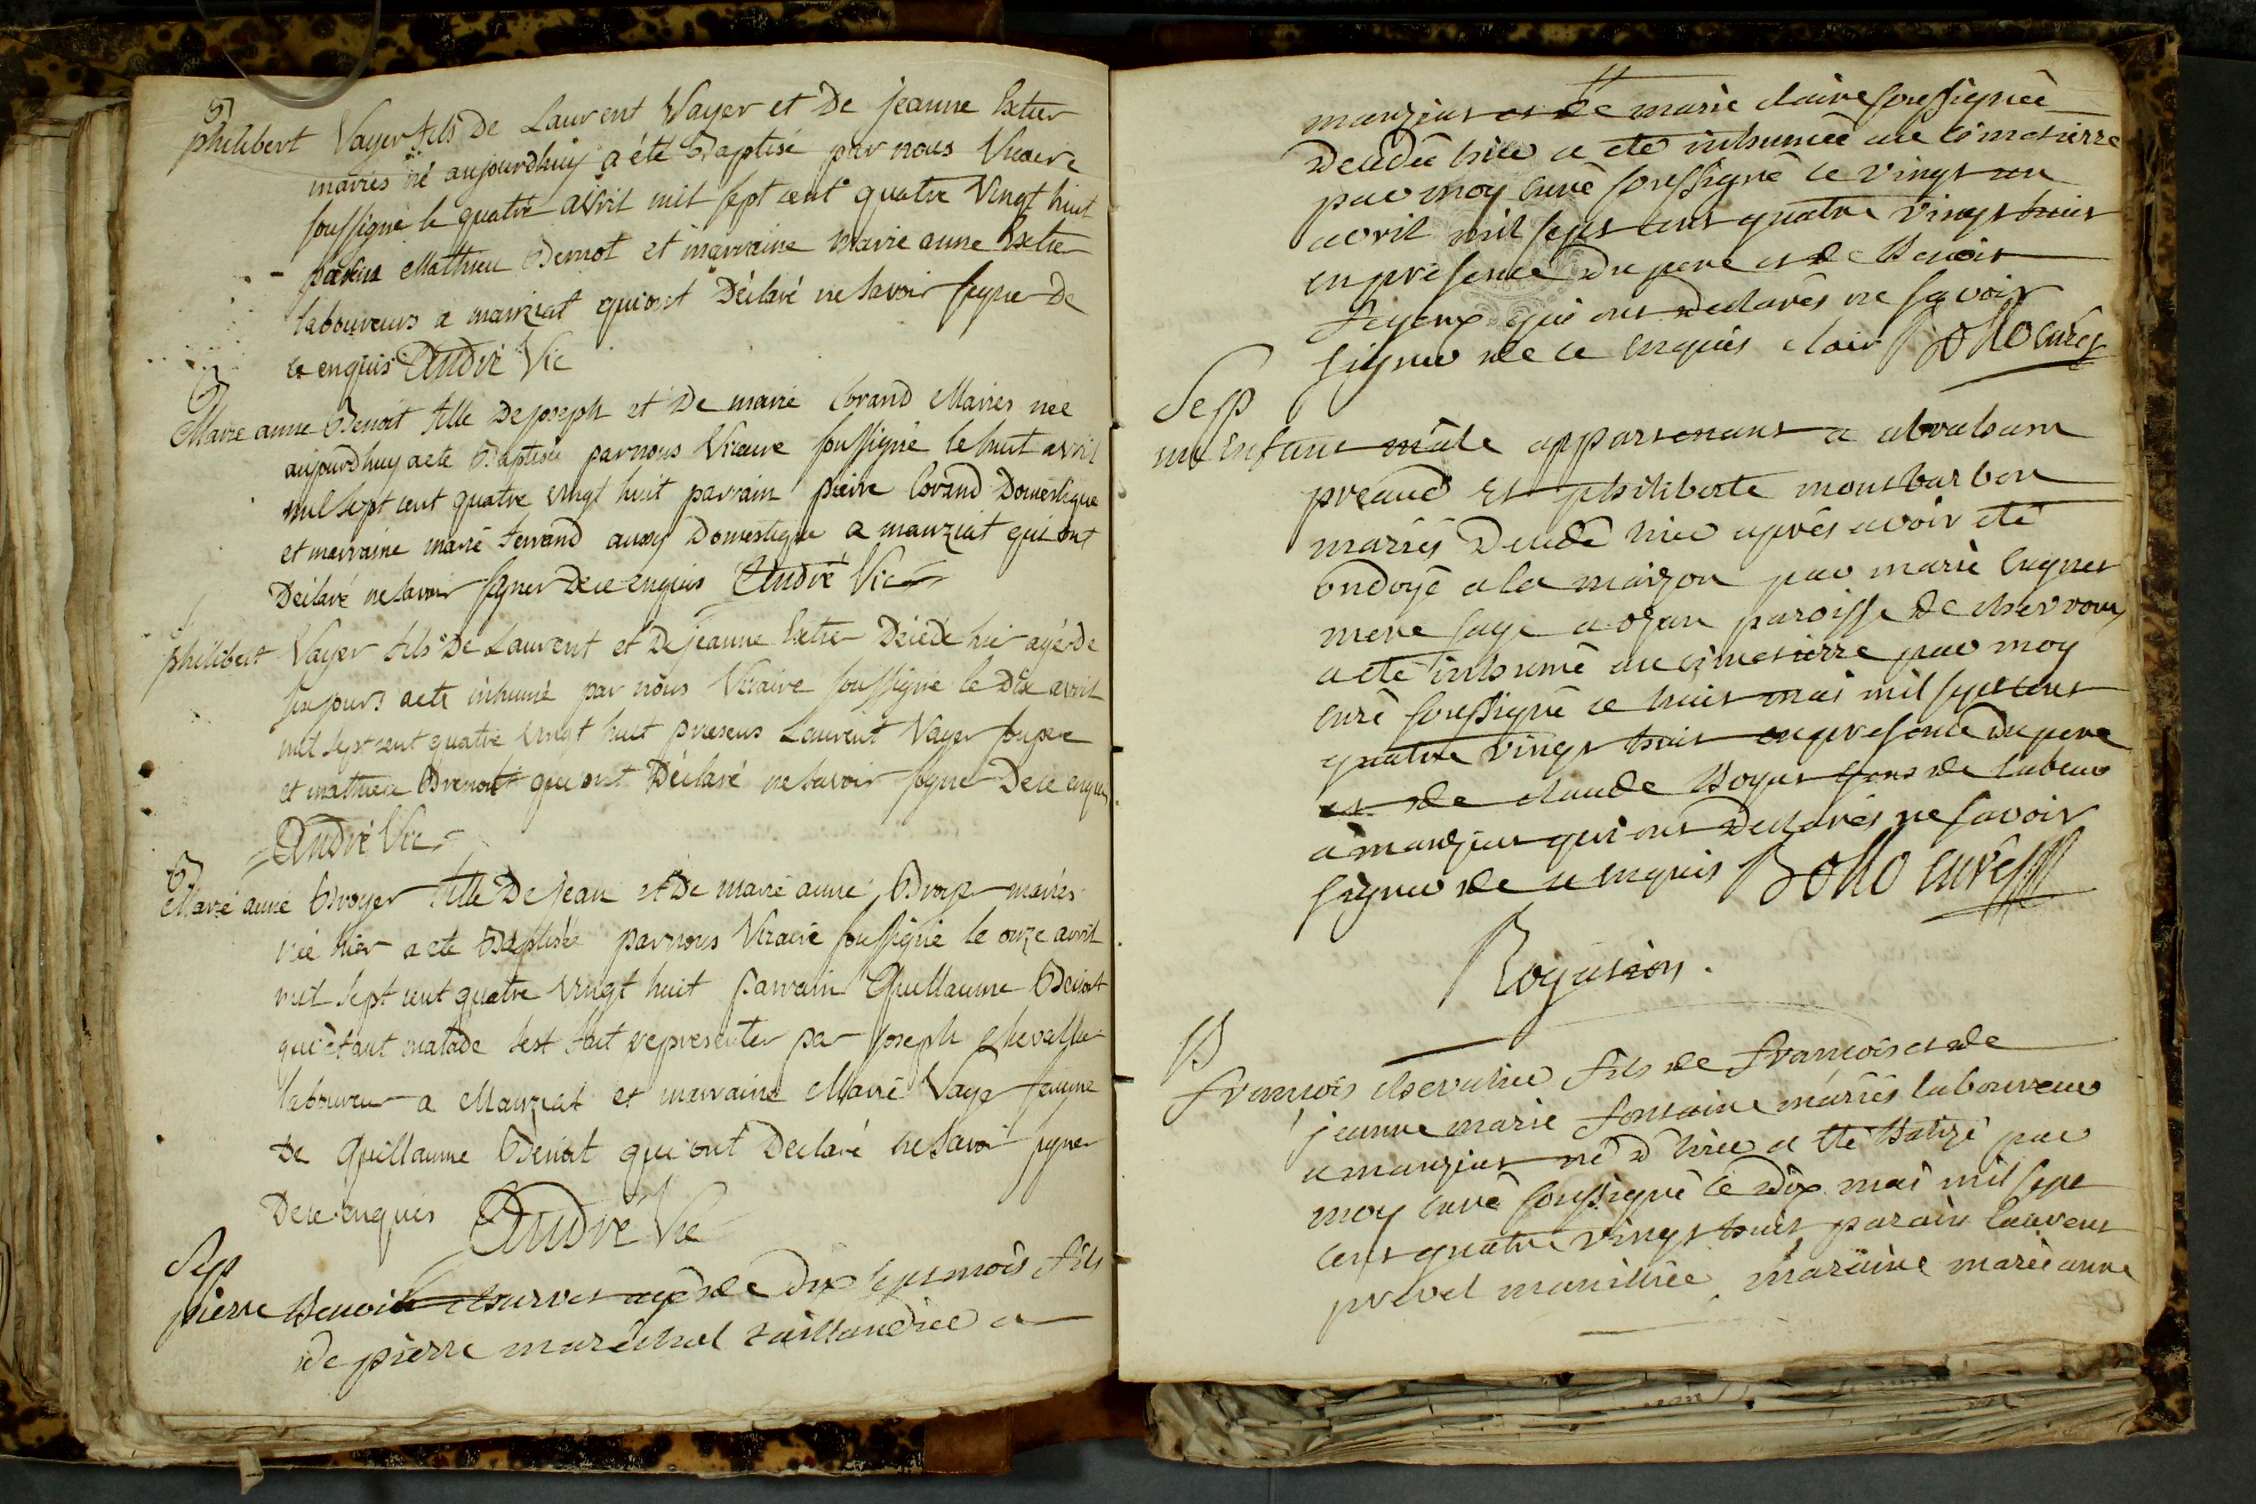 B
philibert Vayer fils De Laurent Vayer et De jeanne Extier
mariés né aujourdhuy a été Baptisé par nous Vicaire
soussigné le quatre avril mil sept cent quatre Vingt huit
parein Mathieu Benoit et marraine marie anne Extier
laboureurs a manziat qui ont Déclaré ne savoir signer De
ce enquis André Vic
B
Marie anne Benoit fille De joseph et De marie Corand Mariés née
aujourdhuy a été Baptisée par nous Vicaire soussigné le huit avril
mil sept cent quatre vingt huit parrain pierre Corand Domestique
et marraine marie ferrand aussy Domestique a manziat qui ont
Déclaré ne savoir signer De ce enquis André Vic
philibert Vayer fils De Laurent et De jeanne Extier Décédé hier agé De
six jours a eté inhumé par nous Vicaire soussigné le Dix avril
mil sept cent quatre vingt huit presens Laurent Vayer son pere
et mathieu Benoit qui ont Déclaré ne savoir signer De ce enquis
André Vic
B
Marie anne Broyer fille De jean et De marie anne mariés
née hier a été Baptisée par nous Vicaire soussigné le onze avril
mil sept cent quatre vingt huit parrain Guillaume Benoit
qui étant malade s'est fait representer par joseph chevallier
laboureur a Manziat et marraine Marie Vayer femme
De Guillaume Benoit qui ont Declaré ne savoir signer
De ce enquis André Vic
Sep
pierre Benoit agé de dix sept mois fils
de pierre marechal taillandier a
manziat et de marie claire soussignée
decedé hier a eté inhumé au cimetierre
par moy curé soussigné ce vingt un
avril mil sept cent quatre vingt huit
en presence du pere et de Benoit
qui ont declarés ne savoir
signer de ce enquis clair Bollo curé
Sep
un enfant mâle appartenant a abraham
préaud et philiberte montbarbon
mariés decedé hier aprés avoir eté
ondoyé a la maizon par marie
mere sage a ozan paroisse de chevroux
a eté inhumé au cimetierre par moy
curé soussigné ce huit mai mil sept cent
quatre vingt huit en presence du pere
et de claude Boyat gens de labeur
a manziat qui ont declarés ne savoir
signer de ce enquis Bollo curé
Rogation.
B
françois chevalier fils de françois et de
jeanne marie fontaine mariés laboureur
a manziat né d'hier a eté Batizé par
moy curé soussigné ce dix mai mil sept
cent quatre vingt huit parain laurent
prevel maraine marie anne